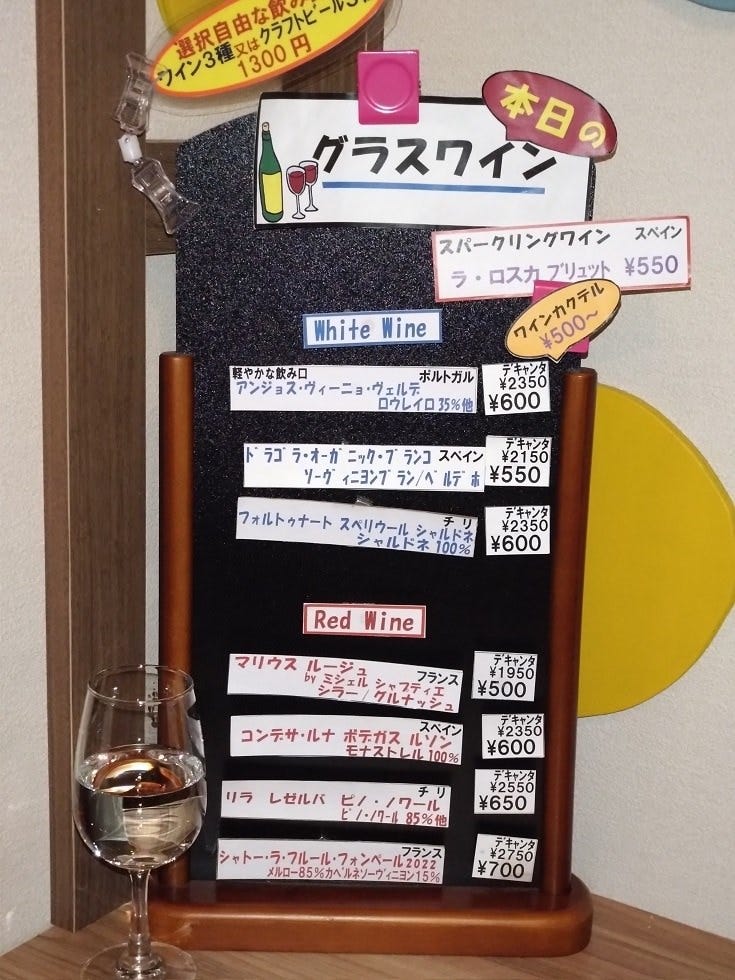 選択自由な飲み
ワイン3種又はクラフトビール3
1300円
本日の
グラスワイン
スパークリングワイン スペイン
ラ・ロスカ ブリュット ¥550
ワインカクテル
¥500~
White Wine
軽やかな飲み口 ポルトガル
アンジョス・ヴィーニョ・ヴェルデ
ロウレイロ35%他
デキャンタ
¥2350
¥600
ドラゴラ・オーガニック・ブランコ スペイン
ソーヴィニヨンブラン/ベルデホ
デキャンタ
¥2150
¥550
チリ
フォルトゥナート スペリウール シャルドネ
シャルドネ 100%
デキャンタ
¥2350
¥600
Red Wine
マリウス ルージュ フランス
by ミシェル シャプティエ
シラー/グルナッシュ
デキャンタ
¥1950
¥500
スペイン
コンデサ・ルナ ボデガス ルソン
モナストレル 100%
デキャンタ
¥2350
¥600
チリ
リラ レゼルバ ピノ・ノワール
ピノ・ノワール 85%他
デキャンタ
¥2550
¥650
フランス
シャトー・ラ・フルール・フォンペール2022
メルロー85%カベルネソーヴィニヨン15%
デキャンタ
¥2750
¥700